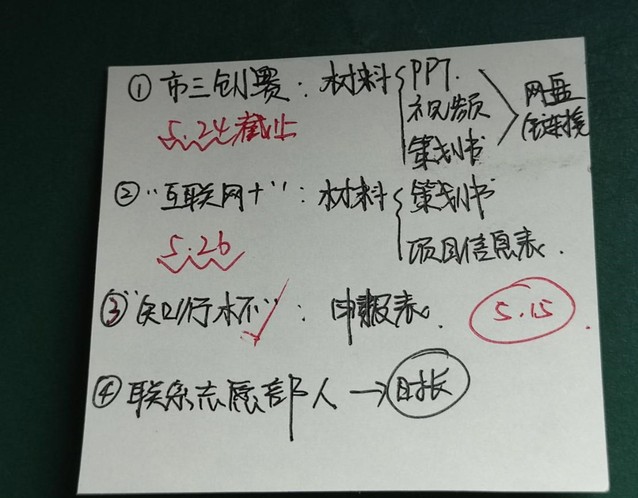 ① 市三创赛：材料{PPT.
视频
策划书
网盘
链接
5.24截止
②“互联网+”：材料{策划书
项目信息表.
5.26
③“知行杯”：申报表. 5.15.
④联系志愿部人→时长